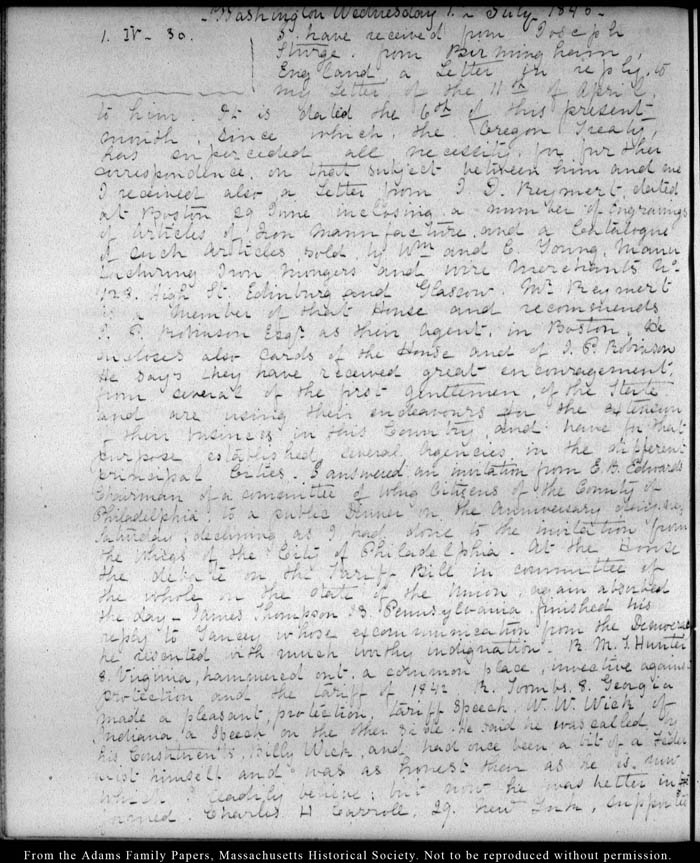 Washington Wednesday 1. July 1846.
1. IV - 30. I have received from Joseph
Sturge from Birmingham,
England a Letter in reply to
my Letter of the 11th of April,
to him. It is dated the 6th of this present
month, since which, the Oregon Treaty,
has superceded all necessity for further
correspondence, on that subject between him and me
I received also a Letter from J. D. Reymert, dated
at Boston 29 June inclosing a number of engravings
of articles of Iron Manufacture, and a Catalogue
of such Articles sold by Wm and C. Young, Manu
facturing Iron mongers and wire merchants No.
128. High St. Edinburg and Glascow. Mr. Reymert
is a member of that House and recommends
J. P. Robinson Esqr. as their agent, in Boston. He
incloses also Cards of the House and of J. P. Robinson
He says they have received great encouragement,
from several of the first gentlemen, of the State
and are using their endeavours for the extension
of their business in this Country, and have for that
purpose established several Agencies in the different
principal Cities. I answered an invitation from E. B. Edwards
Chairman of a committee of Whig Citizens of the County of
Philadelphia, to a public Dinner on the Anniversary day, next
Saturday; declining as I had done to the invitation from
the Whigs of the City of Philadelphia. At the House
the debate on the Tariff Bill in committee of
the whole on the state of the Union, again absorbed
the day - James Thompson 23 Pennsylvania, finished his
reply to Yancey whose excommunication from the Democracy
he resented with much worthy indignation. R. M. T. Hunter
8. Virginia, hammered out, a common place, invective against
protection and the tariff of 1842. R. Toombs. 8. Georgia
made a pleasant, protection, tariff Speech. W. W. Wick of
Indiana, a Speech on the other side. He said he was called, by
his Constituents, Billy Wick, and had once been a bit of a Feder
alist himself and was as honest then as he is now
which I readily believe; but now he was better in
formed. Charles H Carroll, 29. New York, supported
From the Adams Family Papers, Massachusetts Historical Society. Not to be reproduced without permission.